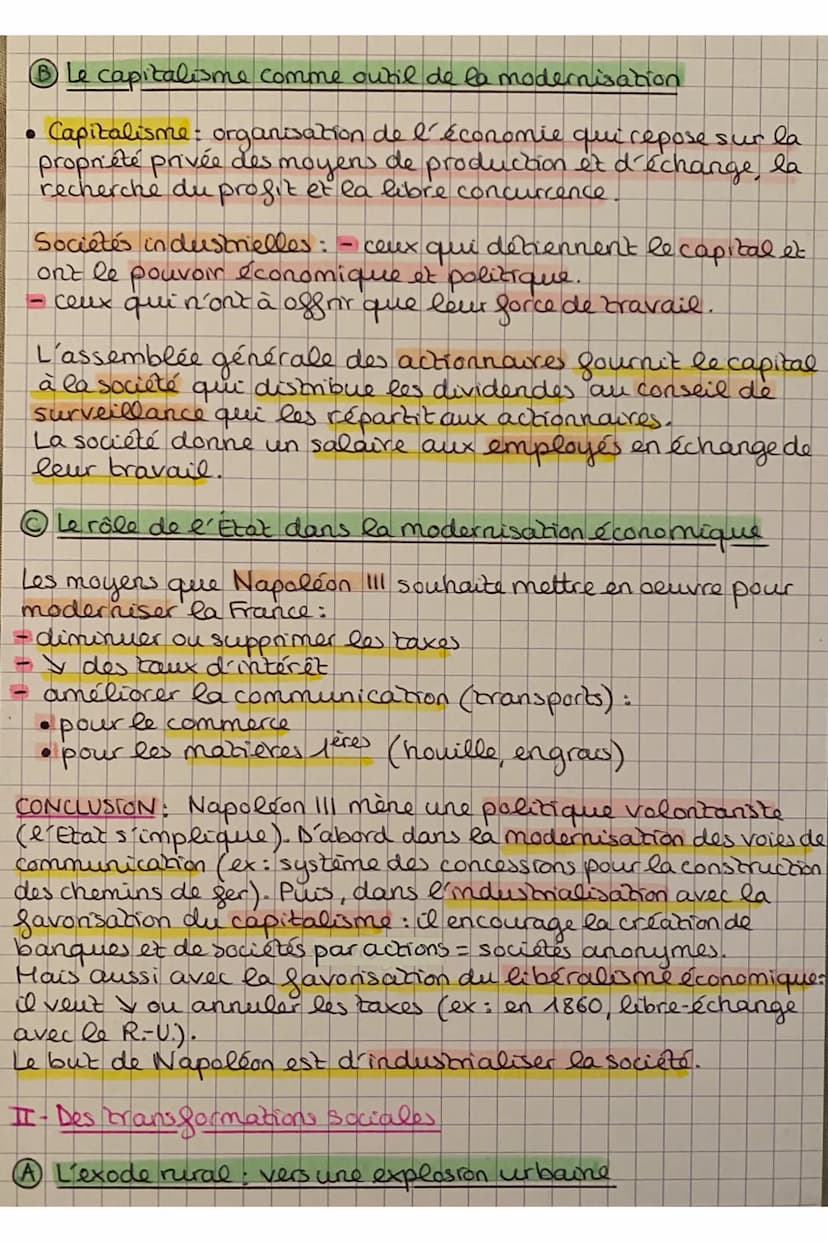 Ⓑ Le capitalisme comme outil de la modernisation
• Capitalisme : organisation de l'économie qui repose sur la
propriété privée des moyens de production et d'échange, la
recherche du profit et la libre concurrence.
Sociétés industrielles : - ceux qui détiennent le capital et
ont le pouvoir économique et politique.
- ceux qui n'ont à offrir que leur force de travail.
L'assemblée générale des actionnaires fournit le capital
à la société qui distribue les dividendes au conseil de
surveillance qui les répartit aux actionnaires.
La société donne un salaire aux employés en échange de
leur travail.
Ⓒ Le rôle de l'État dans la modernisation économique
Les moyens que Napoléon III souhaite mettre en oeuvre pour
moderniser la France :
- diminuer ou supprimer les taxes
- ↘ des taux d'intérêt
- améliorer la communication (transports) :
• pour le commerce
• pour les matières 1ères (houille, engrais)
CONCLUSION : Napoléon III mène une politique volontariste
(l'Etat s'implique). D'abord dans la modernisation des voies de
communication (ex : système des concessions pour la construction
des chemins de fer). Puis, dans l'industrialisation avec la
favorisation du capitalisme : il encourage la création de
banques et de sociétés par actions = sociétés anonymes.
Mais aussi avec la favorisation du libéralisme économique :
il veut ↘ ou annuler les taxes (ex : en 1860, libre-échange
avec le R.-U.).
Le but de Napoléon est d'industrialiser la société.
II - Des transformations sociales
Ⓐ L'exode rural : vers une explosion urbaine